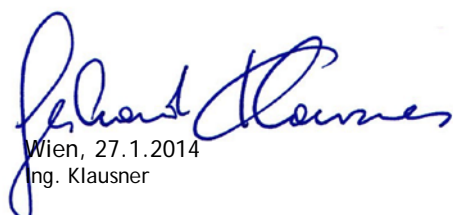 Gerhard Klausner
Wien, 27.1.2014
Ing. Klausner